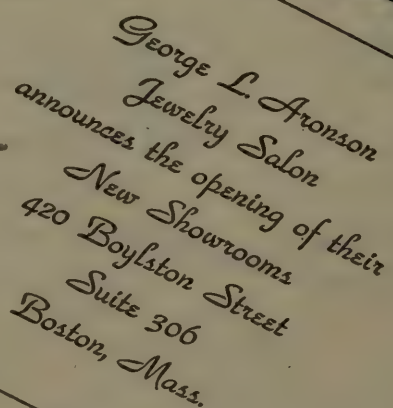 George L. Aronson
Jewelry Salon
announces the opening of their
New Showrooms
420 Boylston Street
Suite 306
Boston, Mass.